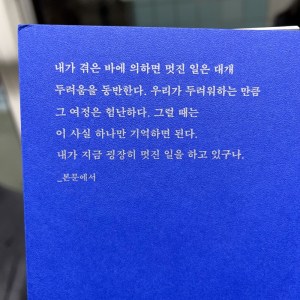 내가 겪은 바에 의하면 멋진 일은 대개
두려움을 동반한다. 우리가 두려워하는 만큼
그 여정은 험난하다. 그럴 때는
이 사실 하나만 기억하면 된다.
내가 지금 굉장히 멋진 일을 하고 있구나.
_본문에서